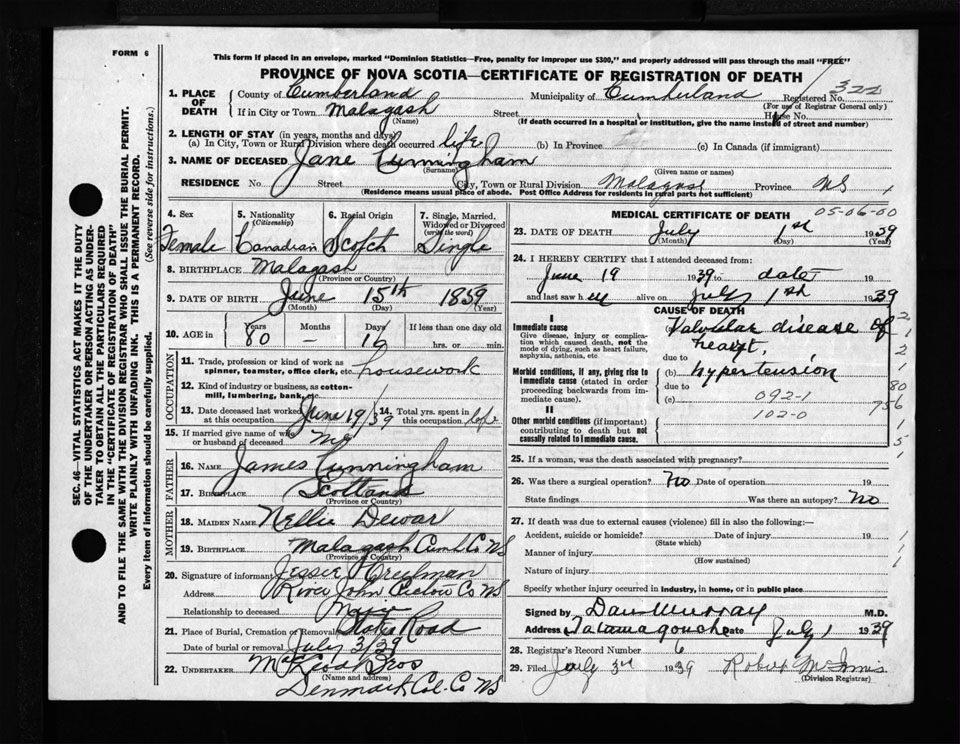 FORM 6
This form if placed in an envelope, marked "Dominion Statistics—Free, penalty for improper use $300," and properly addressed will pass through the mail "FREE"
PROVINCE OF NOVA SCOTIA—CERTIFICATE OF REGISTRATION OF DEATH
1. PLACE OF DEATH
County of Cumberland Municipality of Cumberland Registered No. 322
(For use of Registrar General only)
If in City or Town Malagash Street House No.
(Name) (If death occurred in a hospital or institution, give the name instead of street and number)
2. LENGTH OF STAY (in years, months and days)
(a) In City, Town or Rural Division where death occurred life (b) In Province (c) In Canada (if immigrant)
3. NAME OF DECEASED Jane Cunningham
(Surname) (Given name or names)
RESIDENCE No. Street City, Town or Rural Division Malagash Province NS
(Residence means usual place of abode. Post Office Address for residents in rural parts not sufficient)
4. Sex 5. Nationality (Citizenship) 6. Racial Origin 7. Single, Married, Widowed or Divorced (write the word)
Female Canadian Scotch Single
8. BIRTHPLACE Malagash
(Province or Country)
9. DATE OF BIRTH June 15th 1859
(Month) (Day) (Year)
10. AGE in Years Months Days If less than one day old
80 – 16 hrs. or min.
OCCUPATION
11. Trade, profession or kind of work as spinner, teamster, office clerk, etc. housework
12. Kind of industry or business, as cotton-mill, lumbering, bank, etc.
13. Date deceased last worked at this occupation June 19/39 14. Total yrs. spent in this occupation life
15. If married give name of wife or husband of deceased no
FATHER
16. NAME James Cunningham
17. BIRTHPLACE Scotland
(Province or Country)
MOTHER
18. MAIDEN NAME Nellie Dewar
19. BIRTHPLACE Malagash Cumb. Co NS
(Province or Country)
20. Signature of informant Jessie Creelman
Address River John Pictou Co NS
Relationship to deceased
21. Place of Burial, Cremation or Removal Road
Date of burial or removal July 3/39
22. UNDERTAKER McLeod Bros
(Name and address)
Denmark Col. Co NS
MEDICAL CERTIFICATE OF DEATH
05-06-00
23. DATE OF DEATH July 1st 1939
(Month) (Day) (Year)
24. I HEREBY CERTIFY that I attended deceased from:
June 19 1939 to date 19
and last saw her alive on July 1st 1939
CAUSE OF DEATH
I
Immediate cause
Give disease, injury or complication which caused death, not the mode of dying, such as heart failure, asphyxia, asthenia, etc
(a) Valvular disease of heart,
due to
Morbid conditions, if any, giving rise to immediate cause (stated in order proceeding backwards from immediate cause).
(b) hypertension
due to
(c) 092-1
102-0
II
Other morbid conditions (if important) contributing to death but not causally related to immediate cause.
25. If a woman, was the death associated with pregnancy?
26. Was there a surgical operation? No Date of operation 19
State findings Was there an autopsy? No
27. If death was due to external causes (violence) fill in also the following:—
Accident, suicide or homicide? Date of injury 19
(State which)
Manner of injury
(How sustained)
Nature of injury
Specify whether injury occurred in industry, in home, or in public place
Signed by Dan Murray M.D.
Address Tatamagouche Date July 1 1939
28. Registrar's Record Number 6
29. Filed July 3rd 1939 Robert McInnis
(Division Registrar)
SEC. 46—VITAL STATISTICS ACT MAKES IT THE DUTY OF THE UNDERTAKER OR PERSON ACTING AS UNDERTAKER TO OBTAIN ALL THE PARTICULARS REQUIRED IN THE "CERTIFICATE OF REGISTRATION OF DEATH" AND TO FILE THE SAME WITH THE DIVISION REGISTRAR WHO SHALL ISSUE THE BURIAL PERMIT.
WRITE PLAINLY WITH UNFADING INK. THIS IS A PERMANENT RECORD.
Every item of information should be carefully supplied. (See reverse side for instructions.)